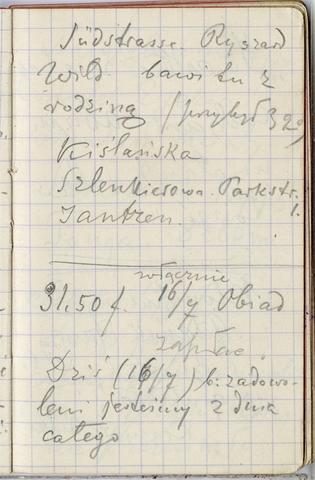 Südstrasse. Ryszard
Wild bawi tu z
rodziną (przybył 329)
Kiślańska
Szlenkierowa. Parkstr.
1.
Jantzen.
włącznie
31.50 f. 16/7 Obiad
zapłac.
Dziś (16/7) b. zadowo-
leni jesteśmy z dnia
całego